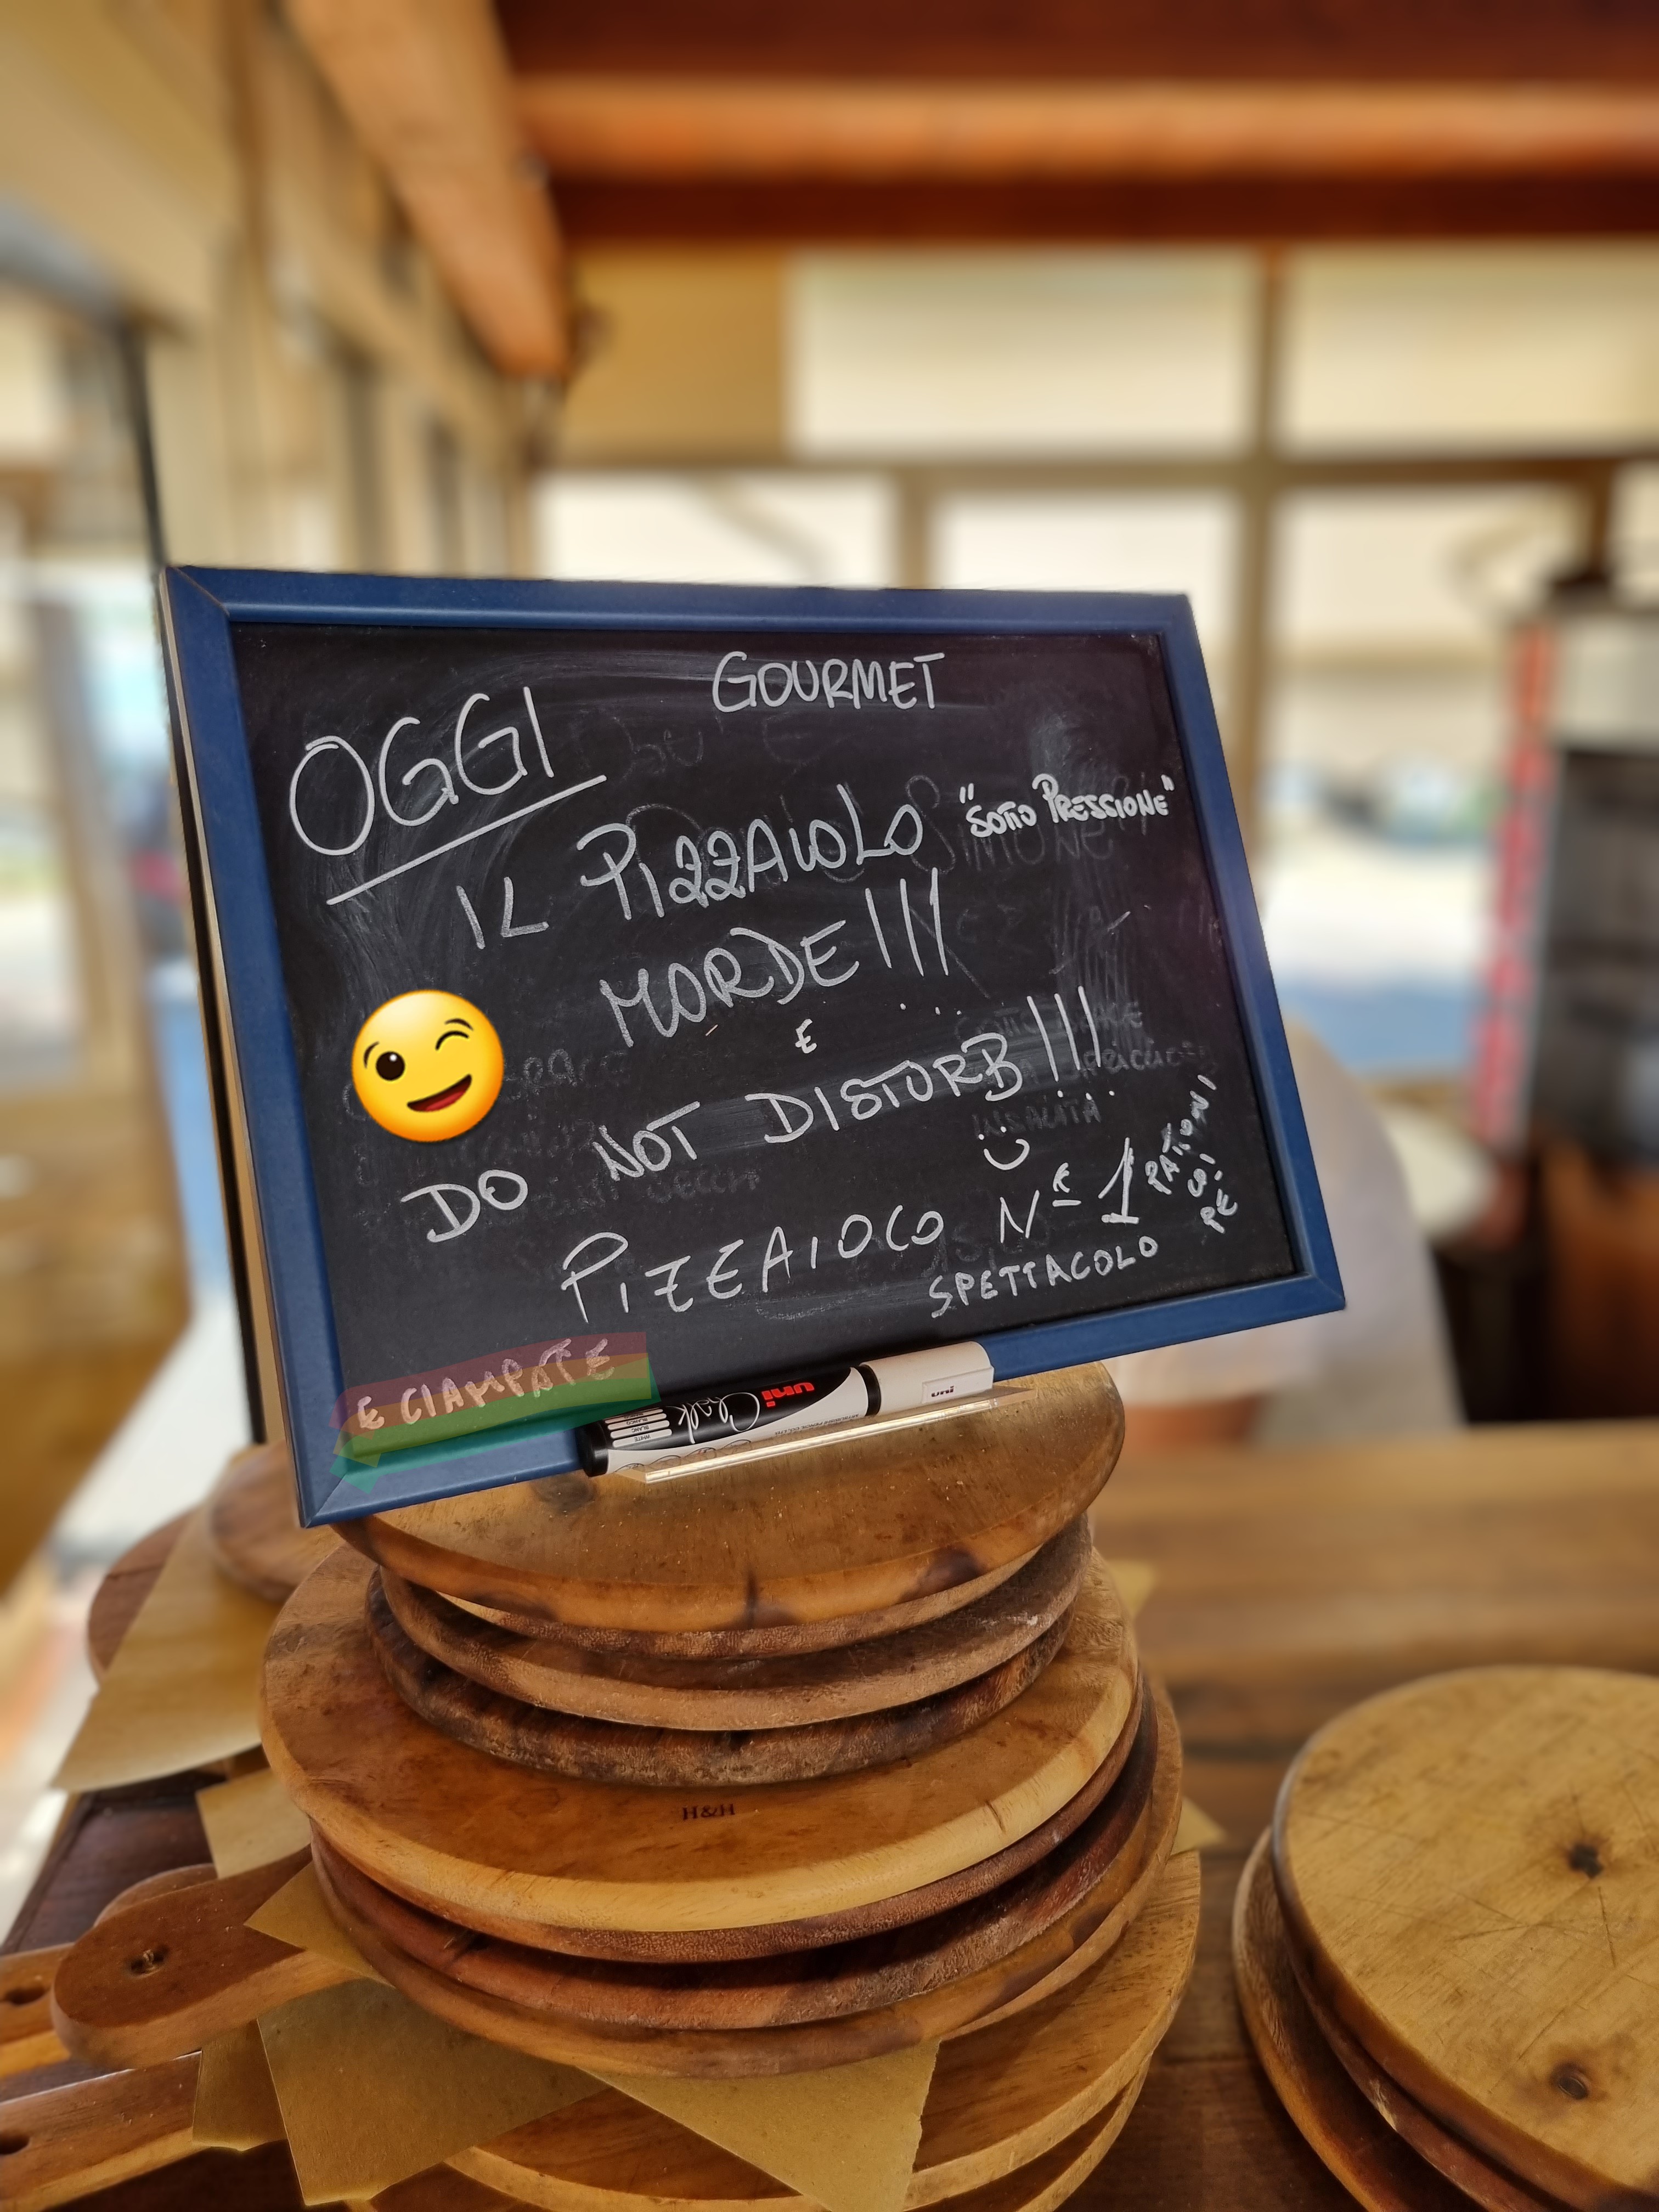 GOURMET
OGGI
IL PIZZAIOLO "SOTTO PRESSIONE"
MORDE!!!
E
DO NOT DISTURB!!!
PIZZAIOLO N° 1
SPETTACOLO
E CIAMPATE
uni
Chalk
uni
H&H